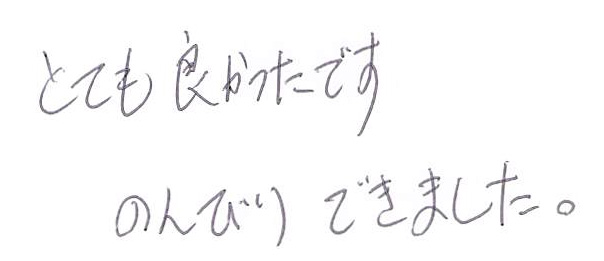 とても良かったです
のんびりできました。